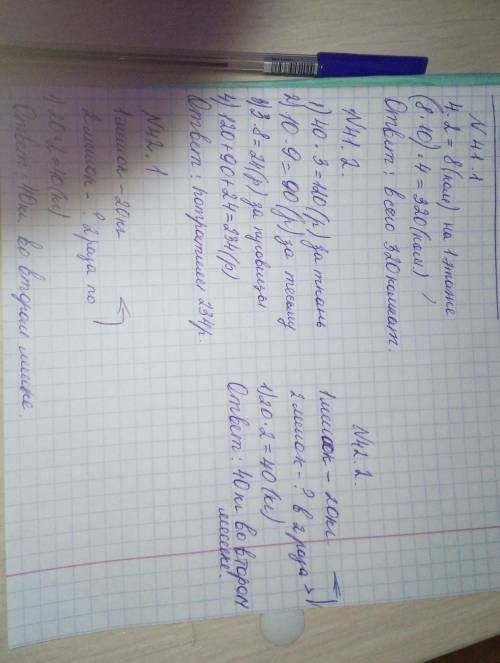 N41.1
4·2=8(ком) на 1 этаже
(8·10)·4=320(ком)
Ответ: всего 320 комнат.
N41.2.
1) 40·3=120(р) за ткань
2) 10·9=90(р) за тесьму
3) 3·8=24(р) за пуговицы
4) 120+90+24=234(р)
Ответ: потратили 234р.
N42.1
1 мешок – 20кг
2 мешок – ? 2 раза по
1) 20·2=40(кг)
Ответ: 40кг во втором мешке.
N42.2.
1 мешок – 20кг.
2 мешок – ? в 2 раза >
1) 20·2=40(кг)
Ответ: 40кг во втором
мешке.